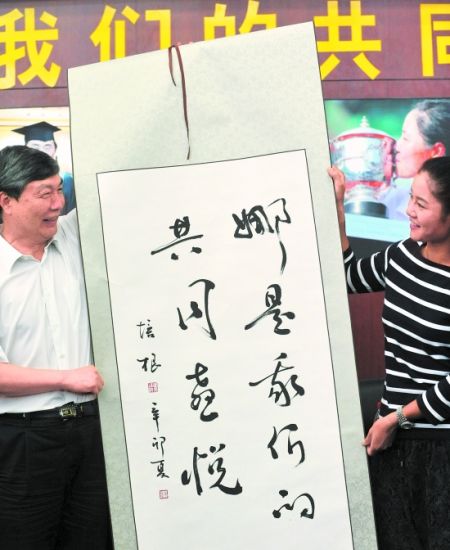 我们的共同
娜是我们的
共同喜悦
培根
辛卯夏